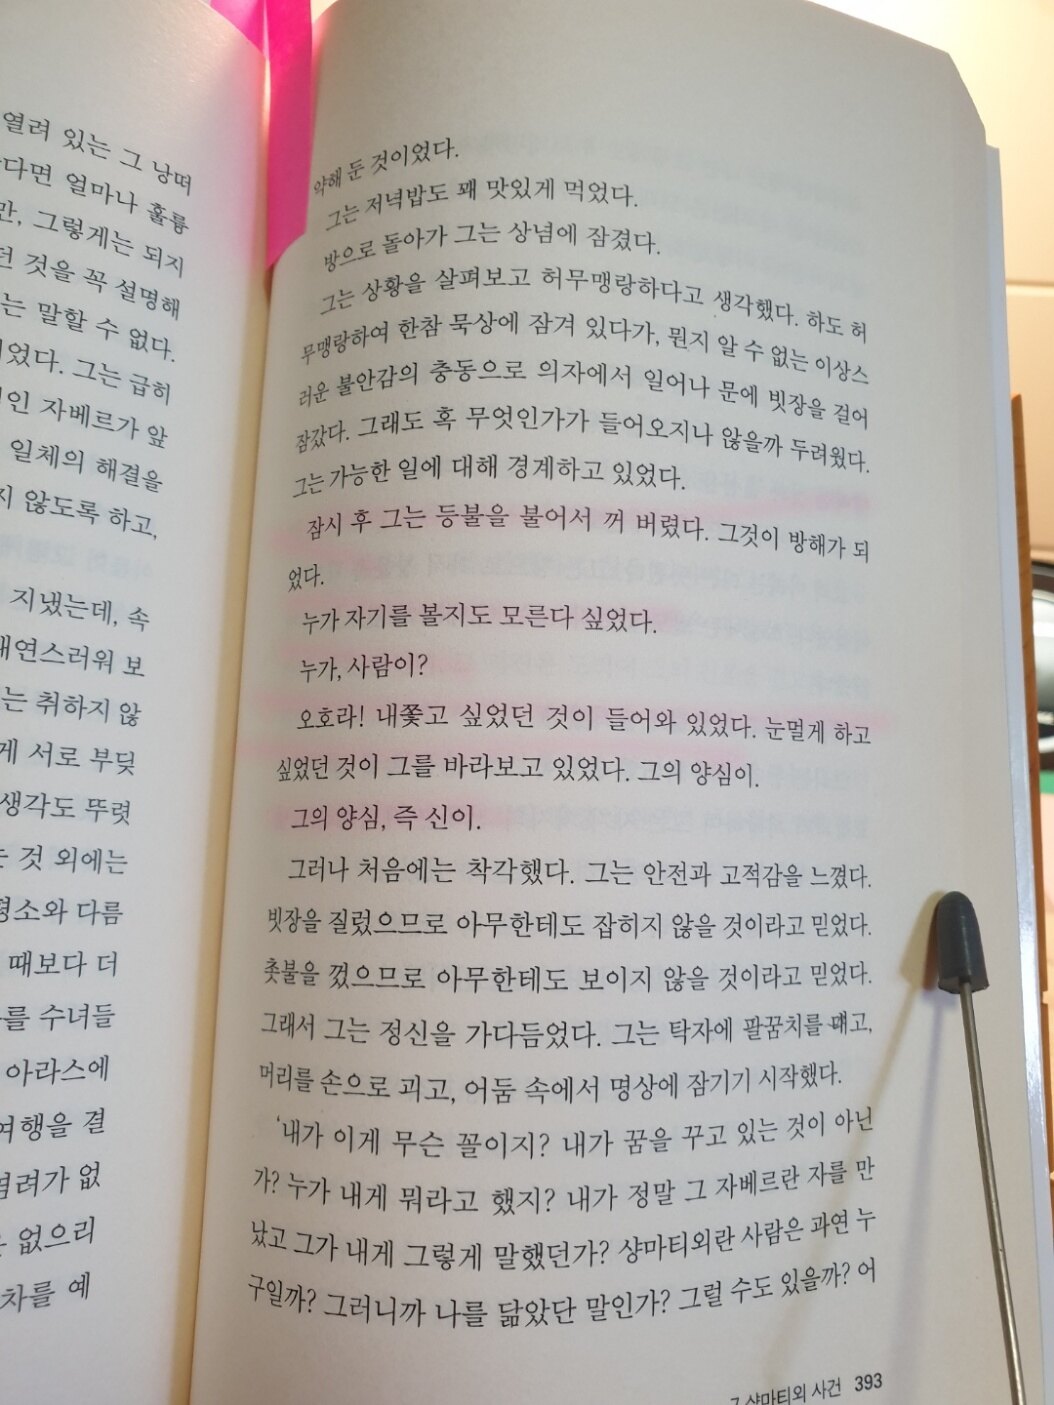 열려 있는 그 낭떠
다면 얼마나 훌륭
만, 그렇게는 되지
것을 꼭 설명해
는 말할 수 없다.
었다. 그는 급히
인 자베르가 앞
일체의 해결을
지 않도록 하고,
지냈는데, 속
태연스러워 보
는 취하지 않
게 서로 부딪
생각도 뚜렷
것 외에는
평소와 다름
때보다 더
를 수녀들
아라스에
여행을 결
염려가 없
없으리
차를 예
약해 둔 것이었다.
그는 저녁밥도 꽤 맛있게 먹었다.
방으로 돌아가 그는 상념에 잠겼다.
그는 상황을 살펴보고 허무맹랑하다고 생각했다. 하도 허
무맹랑하여 한참 묵상에 잠겨 있다가, 뭔지 알 수 없는 이상스
러운 불안감의 충동으로 의자에서 일어나 문에 빗장을 걸어
잠갔다. 그래도 혹 무엇인가가 들어오지나 않을까 두려웠다.
그는 가능한 일에 대해 경계하고 있었다.
잠시 후 그는 등불을 불어서 꺼 버렸다. 그것이 방해가 되
었다.
누가 자기를 볼지도 모른다 싶었다.
누가, 사람이?
오호라! 내쫓고 싶었던 것이 들어와 있었다. 눈멀게 하고
싶었던 것이 그를 바라보고 있었다. 그의 양심이.
그의 양심, 즉 신이.
그러나 처음에는 착각했다. 그는 안전과 고적감을 느꼈다.
빗장을 질렀으므로 아무한테도 잡히지 않을 것이라고 믿었다.
촛불을 껐으므로 아무한테도 보이지 않을 것이라고 믿었다.
그래서 그는 정신을 가다듬었다. 그는 탁자에 팔꿈치를 고,
머리를 손으로 괴고, 어둠 속에서 명상에 잠기기 시작했다.
'내가 이게 무슨 꼴이지? 내가 꿈을 꾸고 있는 것이 아닌
가? 누가 내게 뭐라고 했지? 내가 정말 그 자베르란 자를 만
났고 그가 내게 그렇게 말했던가? 샹마티외란 사람은 과연 누
구일까? 그러니까 나를 닮았단 말인가? 그럴 수도 있을까? 어
샹마티외 사건 393